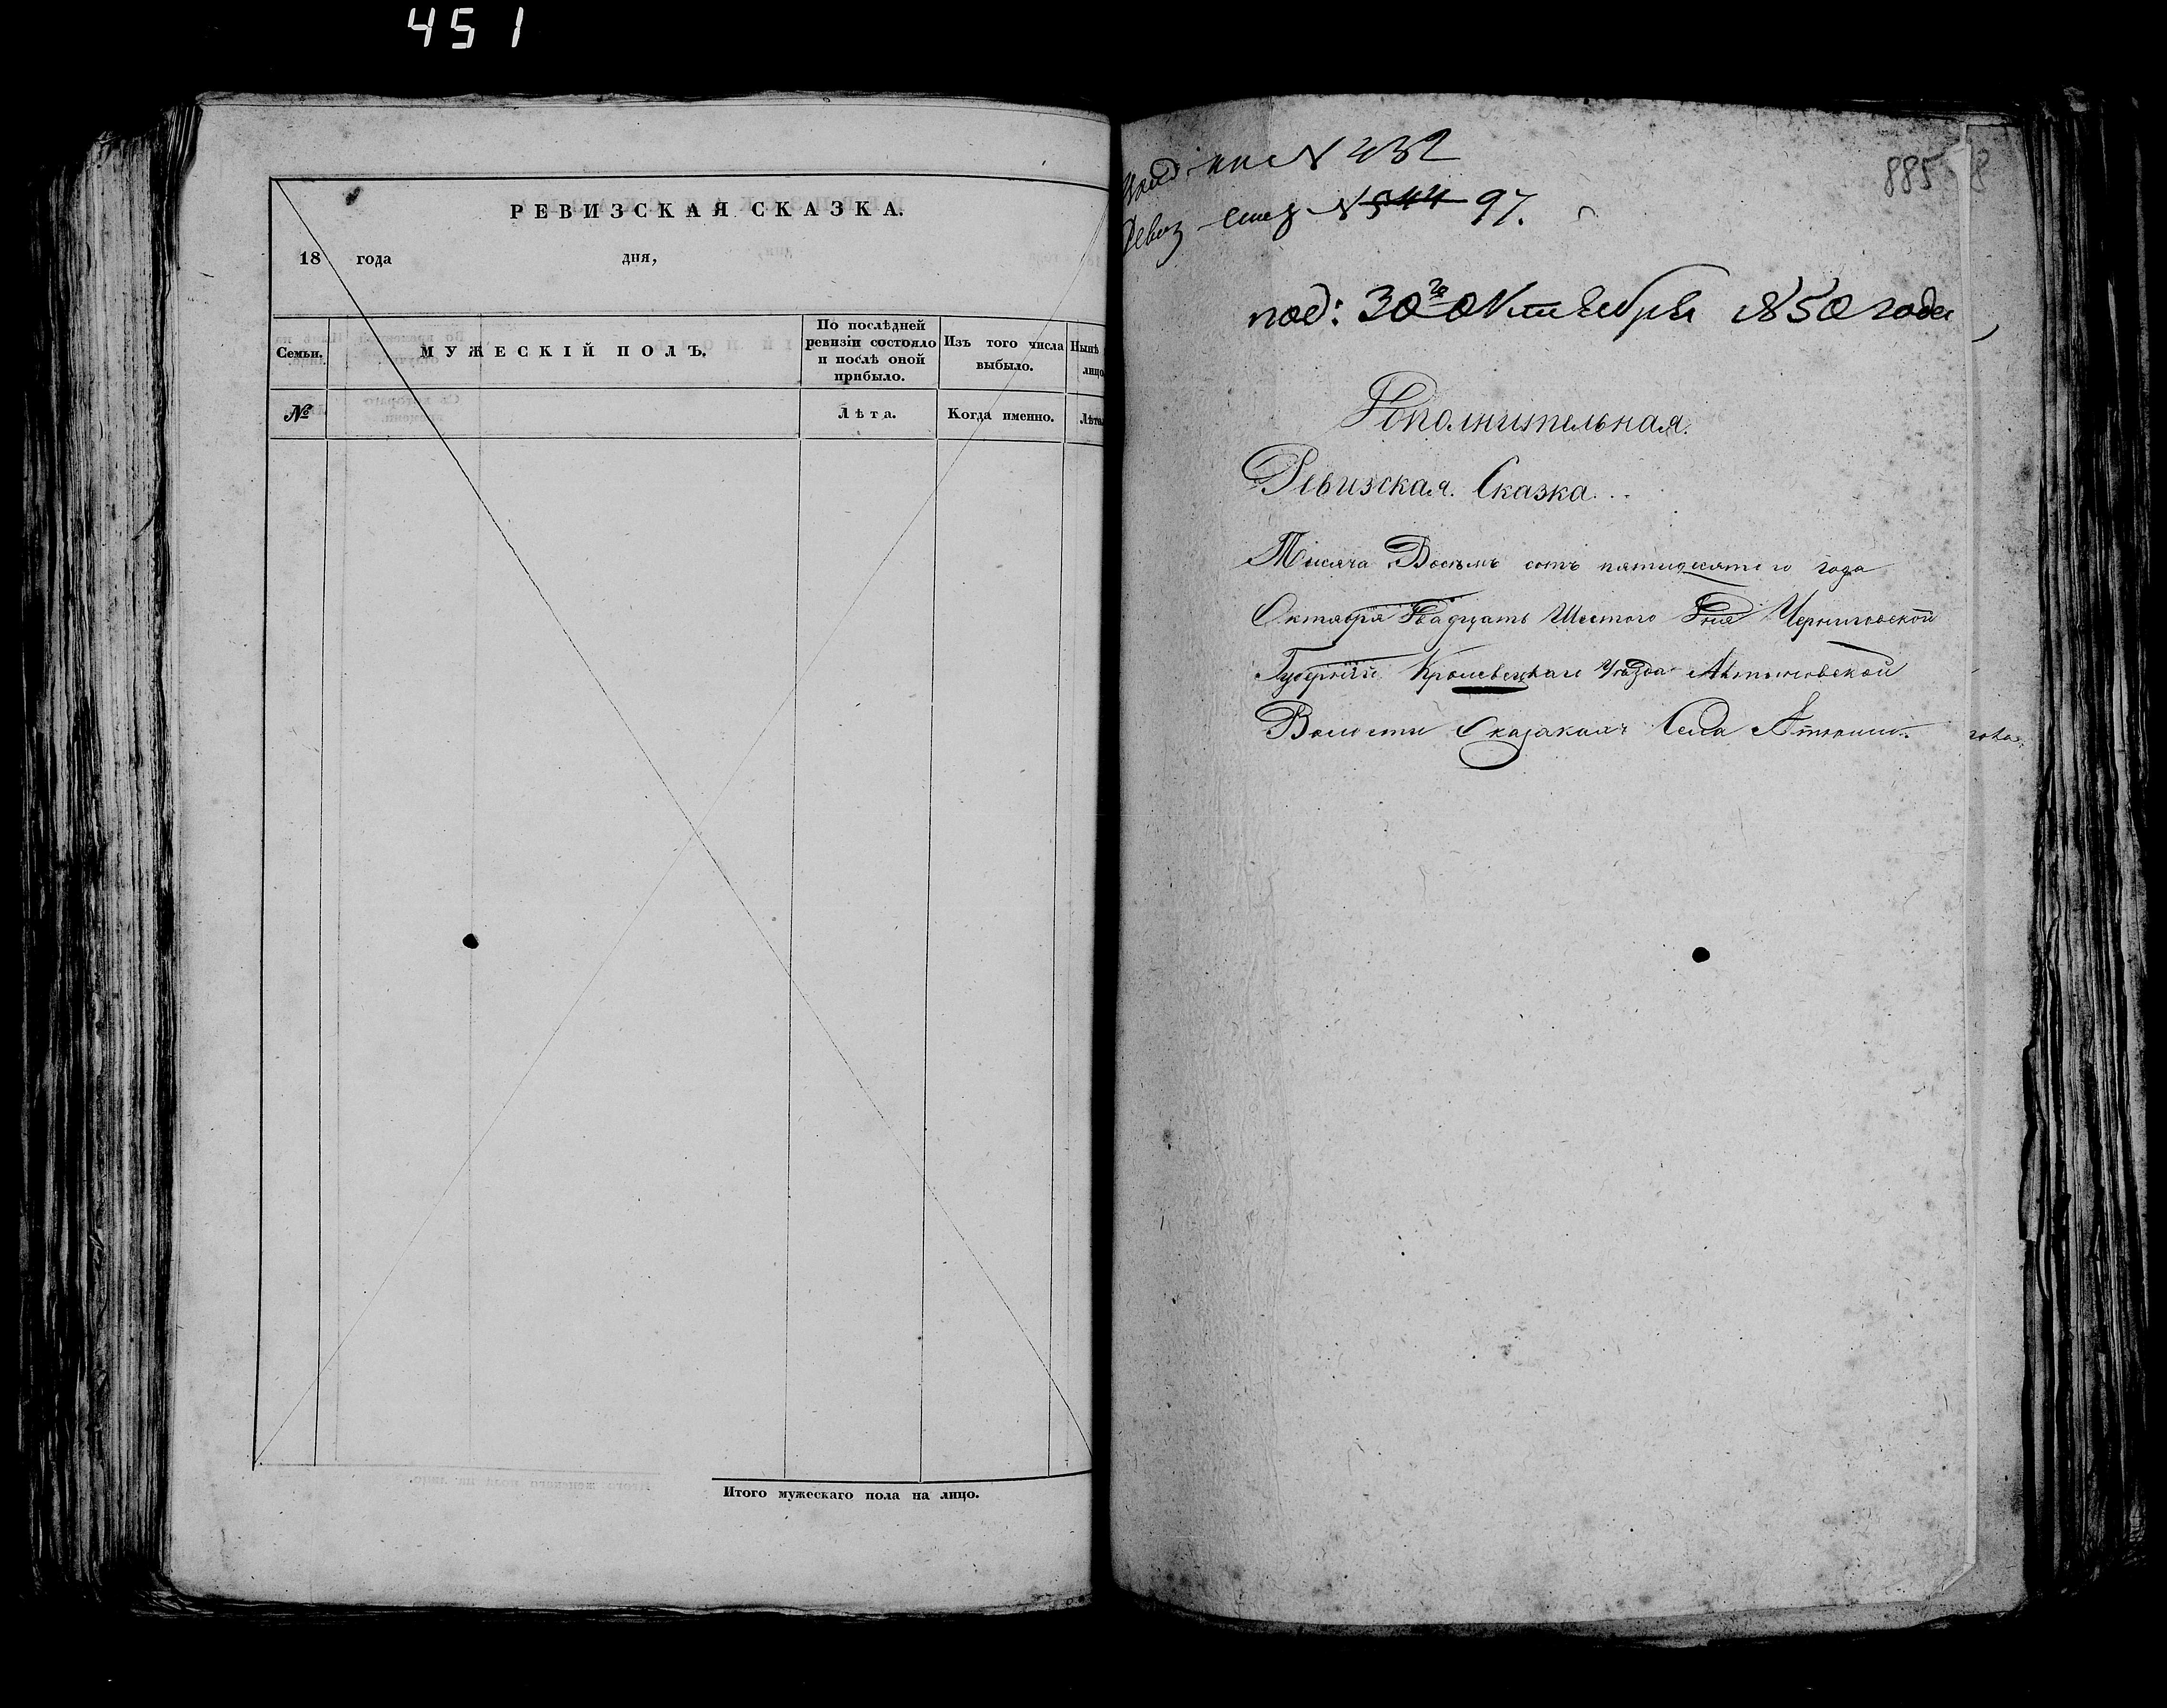 451
РЕВИЗСКАЯ СКАЗКА.
18 года дня,
Семьи.
МУЖЕСКІЙ ПОЛЪ.
По послѣдней ревизіи состояло и послѣ оной прибыло.
Изъ того числа выбыло.
Нынѣ лицо
№
Лѣта.
Когда именно.
Лѣта
Итого мужескаго пола на лицо.
№ 432
885
№ 544 97.
под: 30го Октября 1850 года
Дополнительная.
Ревизская. Сказка.
Тысяча Восемь сотъ пятидесятого года
Октября Двадцать Шестого Дня Черниговской
Губерніи Кролевецкаго Уѣзда
Волости Села